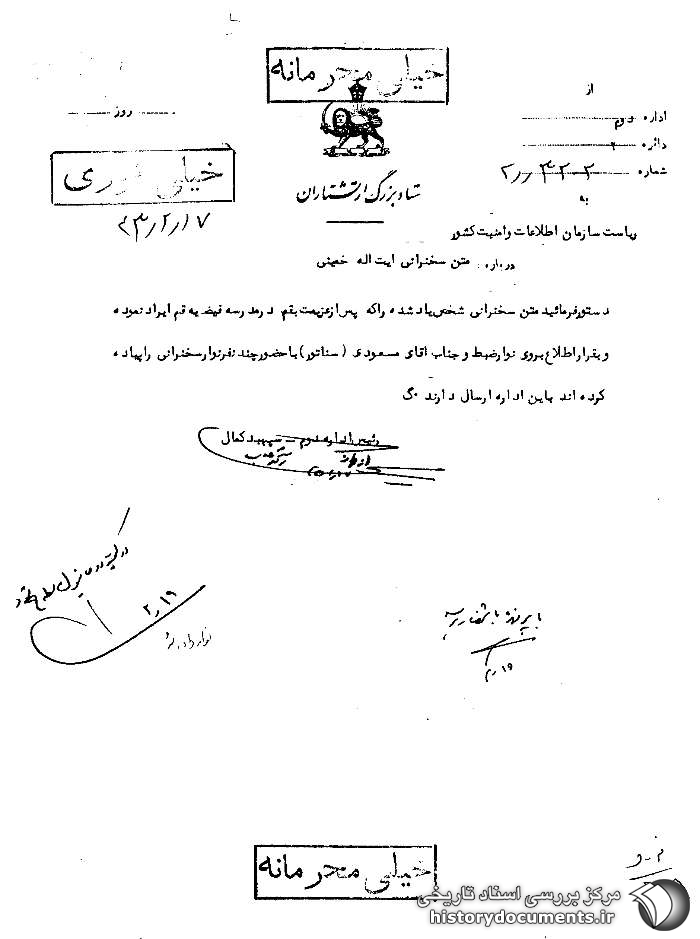 خیلی محرمانه
از
اداره دوم
دائره ۲
شماره
به
روز
خیلی فوری
۴۳/۲/۱۷
ستاد بزرگ ارتشتاران
ریاست سازمان اطلاعات وامنیت کشور
درباره متن سخنرانی ایت اله خمینی
دستورفرمائید متن سخنرانی شخص یاد شده راکه پس ازعزیمت بقم درمدرسه فیضیه قم ایراد نموده
وبقراراطلاع بروی نوارضبط وجناب آقای مسعودی (سناتور) باحضورچند نفرنوارسخنرانی راپیاده
کرده اند باین اداره ارسال دارند
رئیس اداره دوم - سپهبد کمال
۲/۱۹
خیلی محرمانه
مرکز بررسی اسناد تاریخی
historydocuments.ir